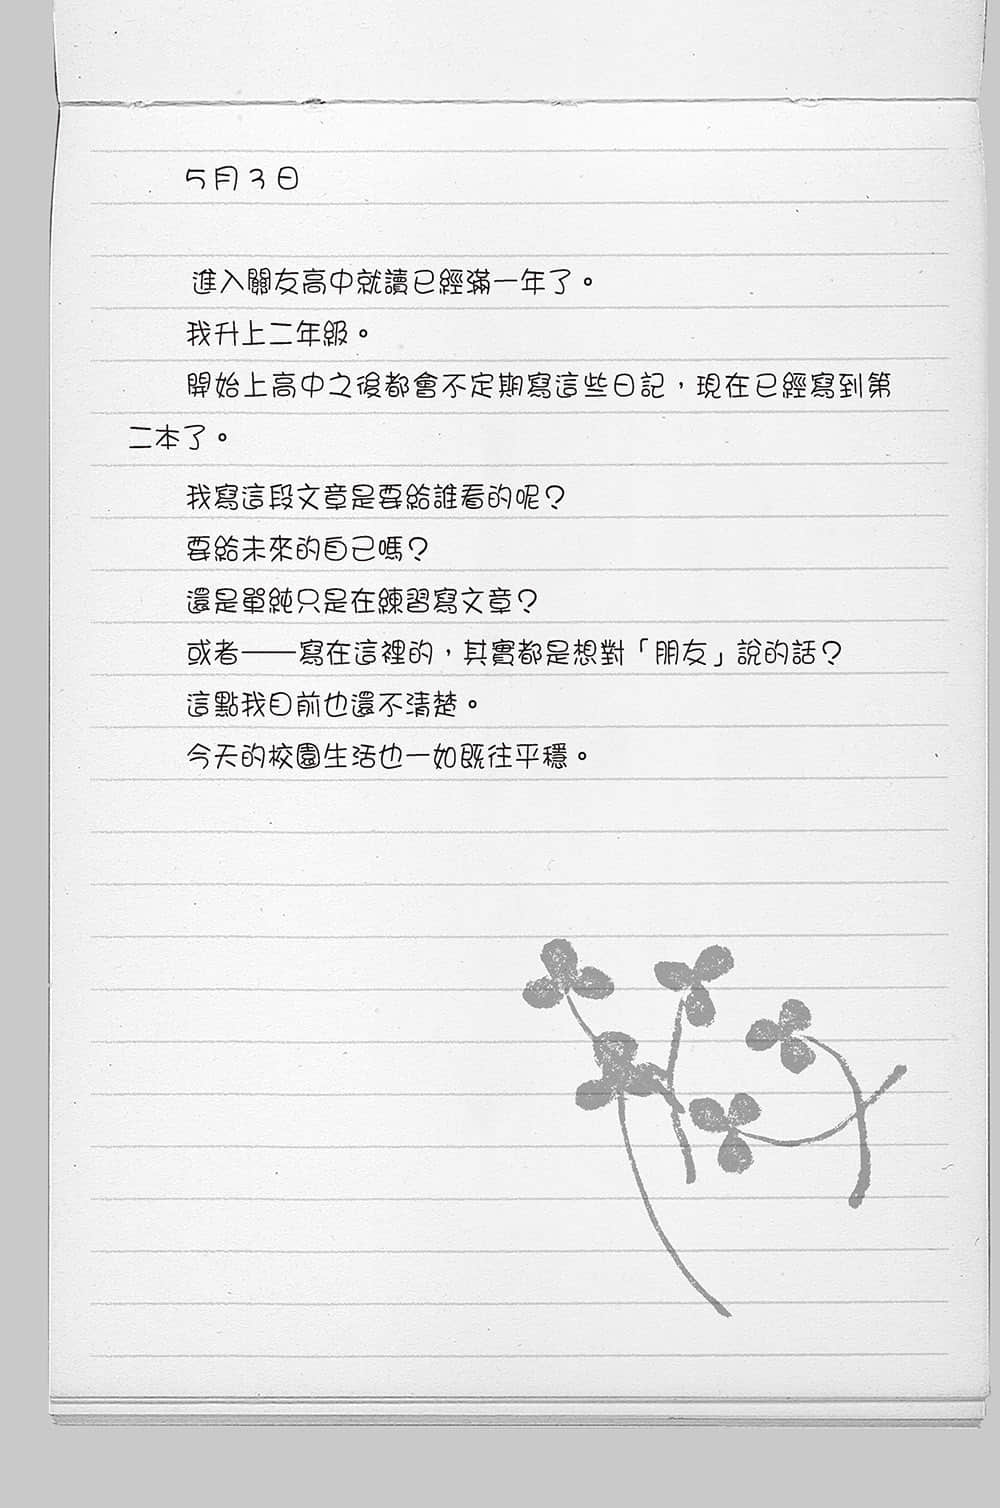 5月3日
進入關友高中就讀已經滿一年了。
我升上二年級。
開始上高中之後都會不定期寫這些日記，現在已經寫到第
二本了。
我寫這段文章是要給誰看的呢？
要給未來的自己嗎？
還是單純只是在練習寫文章？
或者——寫在這裡的，其實都是想對「朋友」說的話？
這點我目前也還不清楚。
今天的校園生活也一如既往平穩。